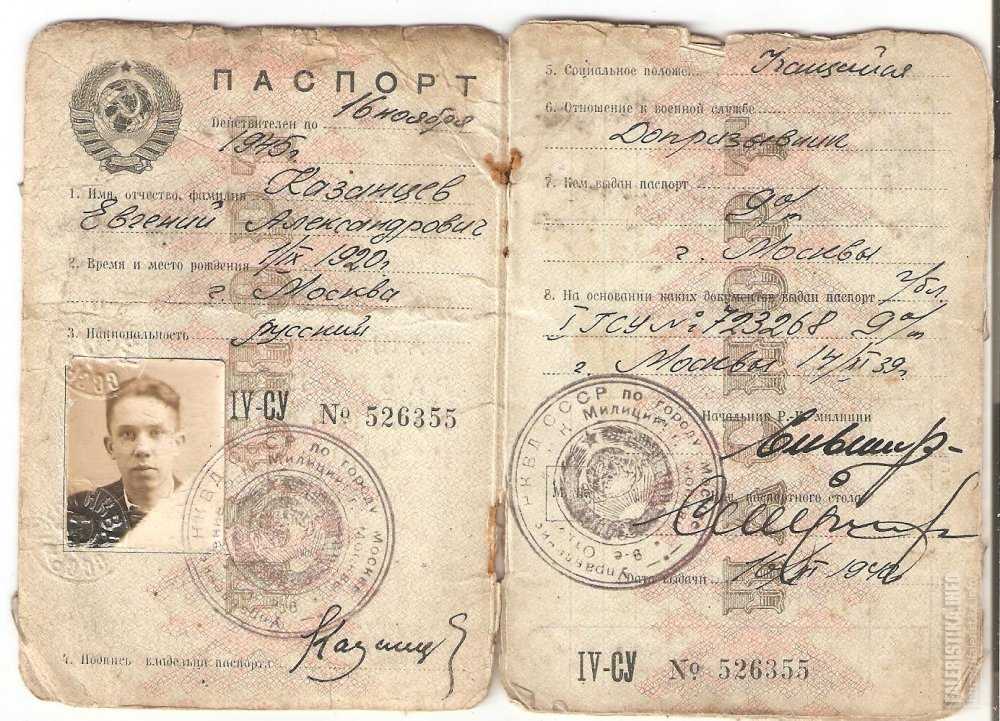 ПАСПОРТ
Действителен по 16 ноября
1945г.
1. Имя, отчество, фамилия Казанцев
Евгений Александрович
2. Время и место рождения 1/IX 1920г.
г. Москва
3. Национальность русский
IV-СУ № 526355
НКВД СССР по городу Москве
Милиции г. Москвы
4. Подпись владельца паспорта
5. Социальное положе... Учащийся
6. Отношение к военной службе
Допризывник
7. Кем выдан паспорт
9 о/м
г. Москвы
8. На основании каких документов выдан паспорт
I ГСУ № 723268 9 о/м
г. Москвы 14/XI 39г.
Начальник Р.-К. милиции
Нач. паспортного стола
Управление НКВД СССР по городу Москве
9-е От
Милиции г.
Дата выдачи 16/XI 1940
IV-СУ № 526355
FALERISTIKA.INFO